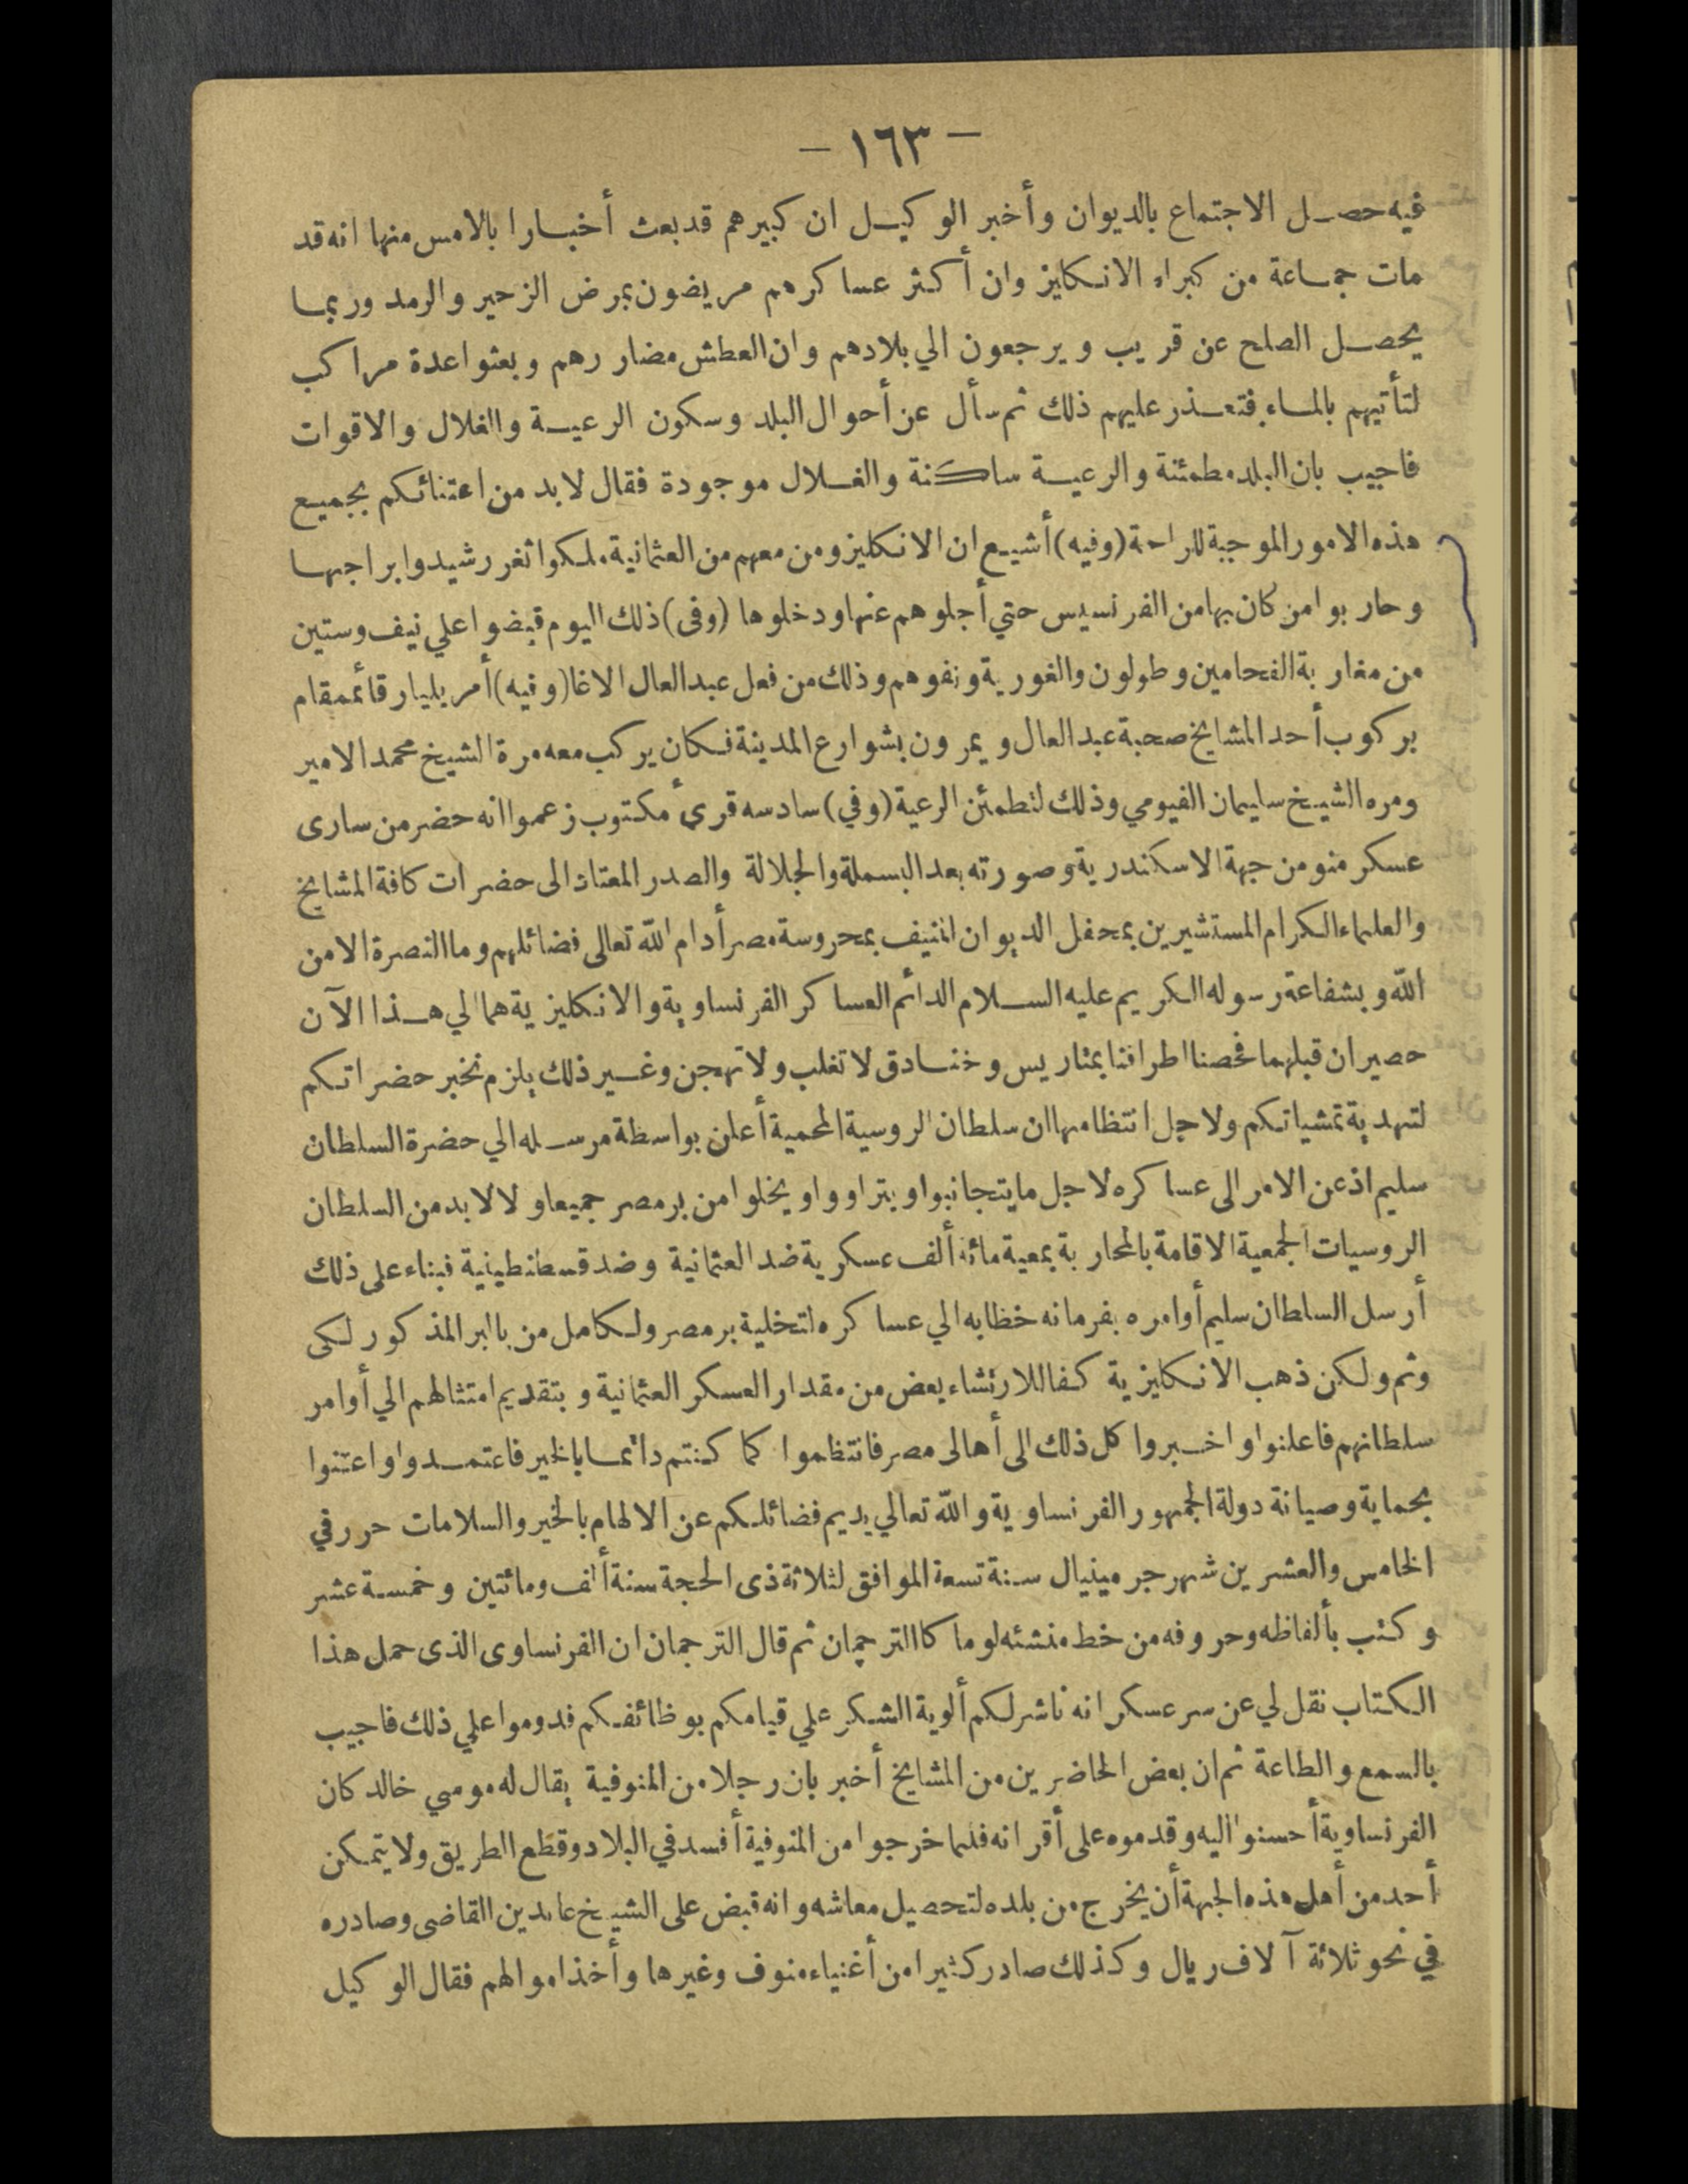 — ١٦٣ —
فيه حصل الاجتماع بالديوان وأخبر الوكيل ان كبيرهم قد بعث أخبارا بالامس منها انه قد
مات جماعة من كبراء الانكليز وان أكثر عساكرهم مريضون بمرض الزحير والرمد وربما
يحصل الصلح عن قريب ويرجعون الي بلادهم وان العطش مضاررهم وبعثوا عدة مراكب
لتأتيهم بالماء فتعذر عليهم ذلك ثم سأل عن أحوال البلد وسكون الرعية والغلال والاقوات
فاجيب بان البلد مطمئنة والرعية ساكنة والغلال موجودة فقال لا بد من اعتنائكم بجميع
هذه الامور الموجبة للراحة (وفيه) أشيع ان الانكليز ومن معهم من العثمانية ملكوا ثغر رشيد وابراجها
وحاربوا من كان بها من الفرنسيس حتي أجلوهم عنها ودخلوها (وفى) ذلك اليوم قبضوا علي نيف وستين
من مغاربة الفحامين وطولون والغورية ونفوهم وذلك من فعل عبد العال الاغا (وفيه) أمر بليار قائممقام
بركوب أحد المشايخ صحبة عبد العال ويمرون بشوارع المدينة فكان يركب معه مرة الشيخ محمد الامير
ومره الشيخ سليمان الفيومي وذلك لتطمئن الرعية (وفي) سادسه قرئ مكتوب زعموا انه حضر من سارى
عسكر منو من جهة الاسكندرية وصورته بعد البسملة والجلالة والصدر المعتاد الى حضرات كافة المشايخ
والعلماء الكرام المستشيرين بمحفل الديوان المنيف بمحروسة مصر أدام الله تعالى فضائلهم وما النصرة الا من
الله وبشفاعة رسوله الكريم عليه السلام الدائم العساكر الفرنساوية والانكليزية هما الي هذا الآن
حصيران قبلهما فحصنا اطرافنا بمتاريس وخنادق لا تغلب ولا تهجن وغير ذلك يلزم نخبر حضراتكم
لتهدية تمشياتكم ولاجل انتظامها ان سلطان الروسية المحمية أعلن بواسطة مرسله الي حضرة السلطان
سليم اذعن الامر الى عساكره لاجل ما يتجانبوا ويتراووا ويخلوا من بر مصر جميعا ولا لا بد من السلطان
الروسيات الجمعية الاقامة بالمحاربة بمعية مائة ألف عسكرية ضد العثمانية وضد قسطنطينية فبناء على ذلك
أرسل السلطان سليم أوامره بفرمانه خطابه الي عساكره لتخلية بر مصر ولكامل من بالبر المذكور لكى
وثم ولكن ذهب الانكليزية كفا للارتشاء بعض من مقدار العسكر العثمانية وبتقديم امتثالهم الي أوامر
سلطانهم فاعلنوا واخبروا كل ذلك الى أهالى مصر فانتظموا كما كنتم دائما بالخير فاعتمدوا واعتنوا
بحماية وصيانة دولة الجمهور الفرنساوية والله تعالي يديم فضائلكم عن الالهام بالخير والسلامات حرر في
الخامس والعشرين شهر جرمينيال سنة تسعة الموافق لثلاثة ذى الحجة سنة ألف ومائتين وخمسة عشر
وكتب بألفاظه وحروفه من خط منشئه لوماكا الترجمان ثم قال الترجمان ان الفرنساوى الذى حمل هذا
الكتاب نقل لي عن سر عسكر انه ناشر لكم ألوية الشكر علي قيامكم بوظائفكم فدوموا علي ذلك فاجيب
بالسمع والطاعة ثم ان بعض الحاضرين من المشايخ أخبر بان رجلا من المنوفية يقال له موسي خالد كان
الفرنساوية أحسنوا اليه وقدموه على أقرانه فلما خرجوا من المنوفية أفسد في البلاد وقطع الطريق ولا يتمكن
أحد من أهل هذه الجهة أن يخرج من بلده لتحصيل معاشه وانه قبض على الشيخ عابدين القاضى وصادره
في نحو ثلاثة آلاف ريال وكذلك صادر كثيرا من أغنياء منوف وغيرها وأخذ اموالهم فقال الوكيل